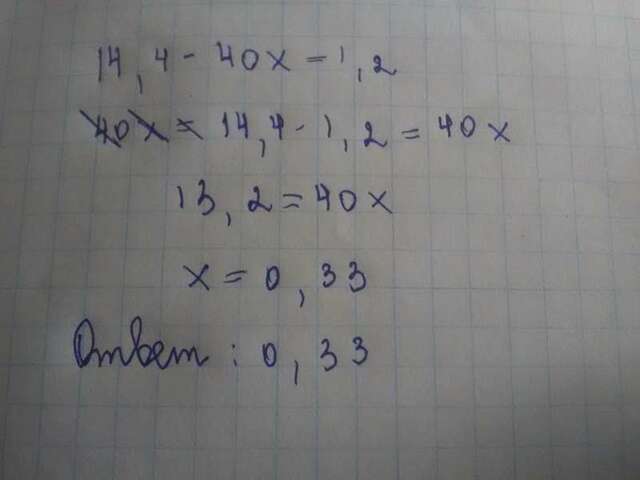 14,4 - 40x = 1,2
40x = 14,4 - 1,2 = 40x
13,2 = 40x
x = 0,33
Ответ: 0,33